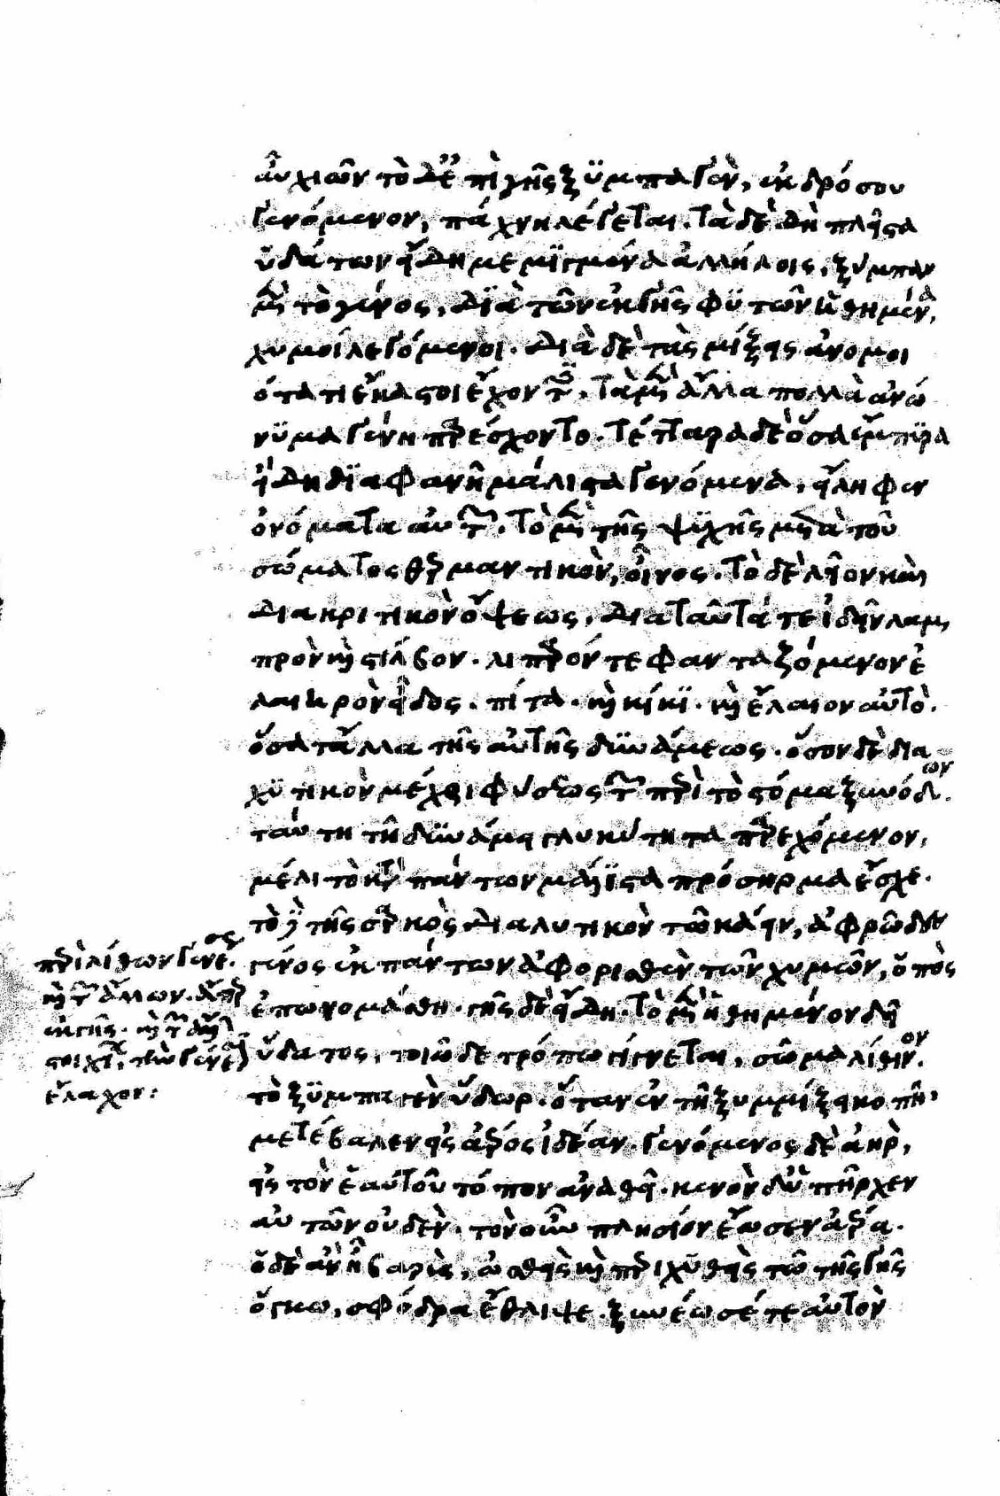 αὖ χιὼν τὸ δ' ἐπὶ γῆς ξϋμπαγὲν, ἐκ δρόσου
γενόμενον, πάχνη λέγεται. τὰ δὲ δὴ πλεῖστα
ὑδάτων εἴδη μεμϊγμένα ἀλλήλοις, ξύμπαν
μὲν τὸ γένος, δϊὰ τῶν ἐκ γῆς φϋτῶν ἠθημένα,
χυμοὶ λεγόμενοι. διὰ δὲ τὰς μίξεις ἀνομοι
ότατι ἕκαστοι ἔχοντες. τὰ μὲν ἄλλα πολλὰ ἀνώ
νϋμα γένη παρέσχοντο. τέτταρα δὲ ὅσα ἔμπϋρα
εἴδη δϊαφανῆ μάλιστα γενόμενα, εἴληφεν
ὀνόματα αὐτῶν. τὸ μὲν τῆς ψϋχῆς μετὰ τοῦ
σώματος θερμαντικὸν, οἶνος. τὸ δὲ λεῖον καὶ
διακριτικὸν ὄψεως, διὰ ταῦτά τε ἰδεῖν λαμ
πρὸν καὶ στίλβον. λιπαρόν τε φανταζόμενον ἐ
λαιηρὸν εἶδος. πίττα. καὶ κίκϊ. καὶ ἔλαιον αὐτὸ.
ὅσα τἄλλα τῆς αὐτῆς δϋνάμεως. ὅσον δὲ δια
χϋτικὸν μέχρι φύσεως τῶν περὶ τὸ στόμα ξυνόδων.
ταύτῃ τῇ δϋνάμει γλυκύτητα παρεχόμενον,
μέλι τὸ κατὰ πάντων μάλϊστα πρόσρημα ἔσχε.
τὸ δὲ τῆς σαρκὸς διαλυτικὸν τῷ κάειν, ἀφρῶδες
γένος ἐκ πάντων ἀφορισθὲν τῶν χυμῶν, ὀπὸς
ἐπωνομάσθη. γῆς δὲ εἴδη. τὸ μὲν ἠθημένον δῇ
ὕδατος, τοιῶδε τρόπω γίγνεται, σῶμα λίθινον.
τὸ ξϋμπαγὲν ὕδωρ. ὅταν ἐν τῇ ξυμμίξει κοπῇ,
μετέβαλεν εἰς ἀέρος ἰδέαν. γενόμενος δὲ ἀὴρ,
εἰς τὸν ἑαυτοῦ τόπον ἀναθεῖ. κενὸν δ' ὑπῆρχεν
αὐτῶν οὐδὲν. τὸν οὖν πλησίον ἔωσεν ἀέρα.
ὁ δὲ ἅτε ὢν βαρὺς, ὠσθεὶς καὶ περιχϋθεὶς τῷ τῆς γῆς
ὄγκω, σφόδρα ἔθλιψε. ξυνέωσέ τε αὐτὸν
περὶ λίθων γενέσεως.
καὶ τῶν ἄλλων. ἅπερ
ἐκ γῆς. καὶ τῶν ἄλλων
στοιχείων, τὴν γένεσιν
ἔλαχον: